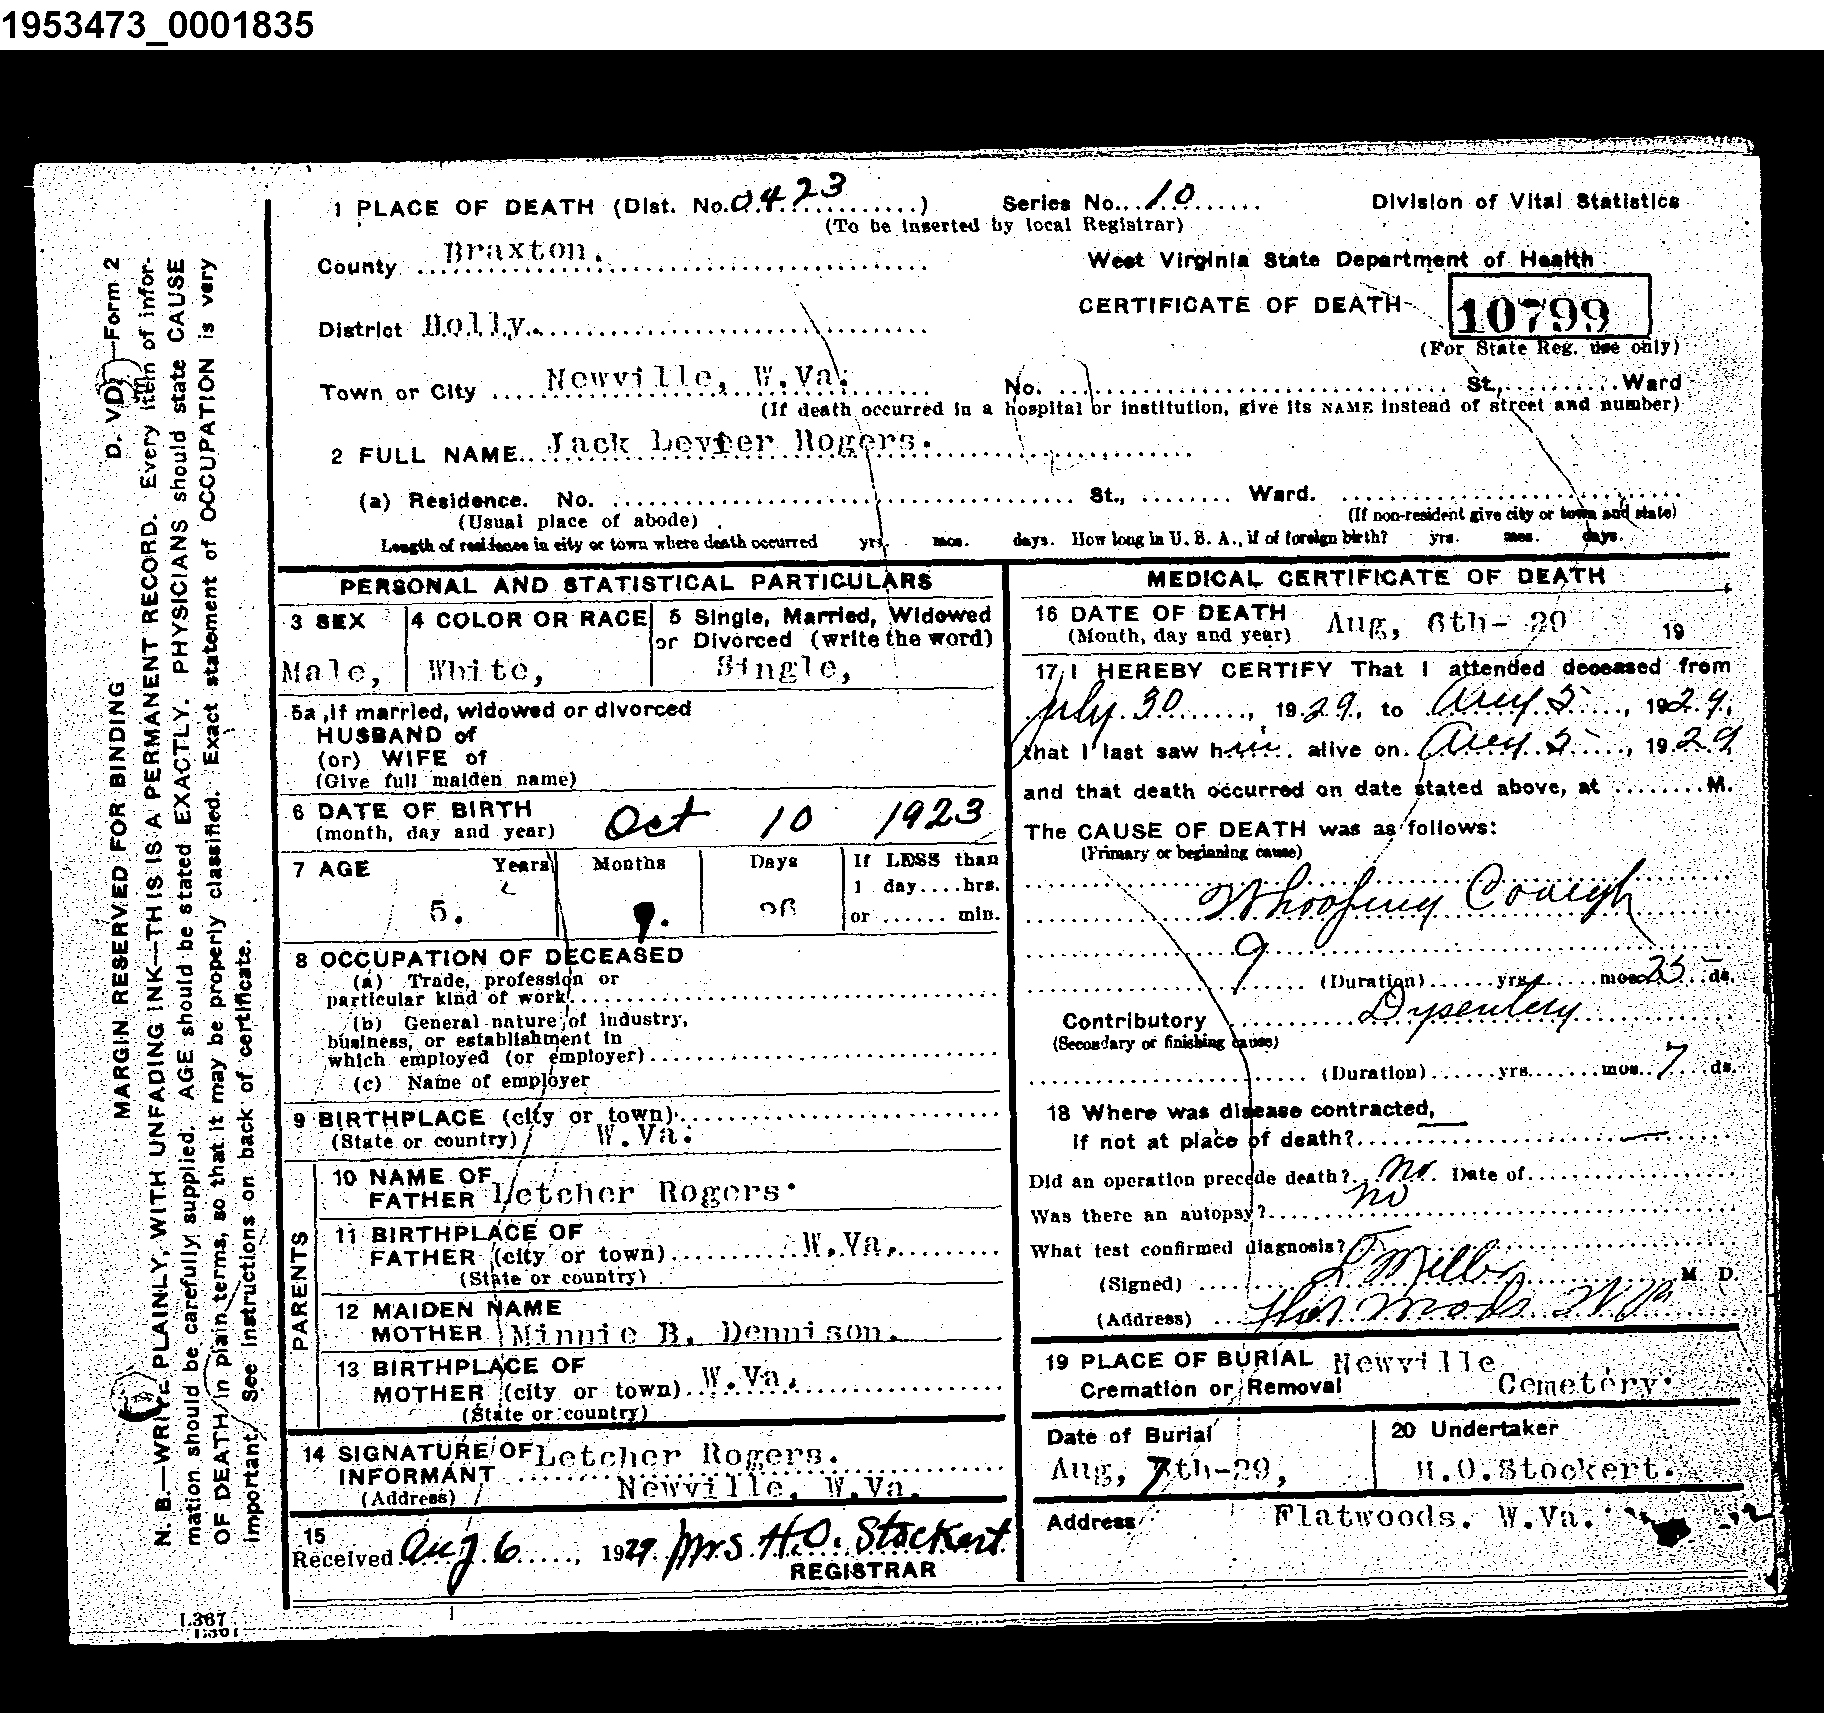 1953473_0001835
1 PLACE OF DEATH (Dist. No. 0423) Series No. 10 Division of Vital Statistics
(To be inserted by local Registrar)
County Braxton.
West Virginia State Department of Health
CERTIFICATE OF DEATH 10799
District Holly.
(For State Reg. use only)
Town or City Newville, W.Va. No. St., Ward
(If death occurred in a hospital or institution, give its NAME instead of street and number)
2 FULL NAME Jack Rogers.
(a) Residence. No. St., Ward.
(Usual place of abode) (If non-resident give city or town and state)
Length of residence in city or town where death occurred yrs. mos. days. How long in U. S. A., if of foreign birth? yrs. mos. days.
PERSONAL AND STATISTICAL PARTICULARS
3 SEX 4 COLOR OR RACE 5 Single, Married, Widowed
or Divorced (write the word)
Male, White, Single,
5a If married, widowed or divorced
HUSBAND of
(or) WIFE of
(Give full maiden name)
6 DATE OF BIRTH
(month, day and year) Oct 10 1923
7 AGE Years Months Days If LESS than
1 day....hrs.
5. 9. 26 or ...... min.
8 OCCUPATION OF DECEASED
(a) Trade, profession or
particular kind of work
(b) General nature of industry,
business, or establishment in
which employed (or employer)
(c) Name of employer
9 BIRTHPLACE (city or town)
(State or country) W.Va.
PARENTS
10 NAME OF
FATHER Letcher Rogers.
11 BIRTHPLACE OF
FATHER (city or town) W.Va.
(State or country)
12 MAIDEN NAME
MOTHER Minnie B. Dennison.
13 BIRTHPLACE OF
MOTHER (city or town) W.Va.
(State or country)
14 SIGNATURE OF
INFORMANT Letcher Rogers.
(Address) Newville, W.Va.
15
Received Aug 6, 1929. Mrs. H.O. Stockert
REGISTRAR
MEDICAL CERTIFICATE OF DEATH
16 DATE OF DEATH
(Month, day and year) Aug, 6th- 29 19
17 I HEREBY CERTIFY That I attended deceased from
July 30, 1929, to Aug 5, 1929,
that I last saw him alive on Aug 5, 1929
and that death occurred on date stated above, at M.
The CAUSE OF DEATH was as follows:
(Primary or beginning cause)
Whooping Cough
9
(Duration) yrs. mos. 25 ds.
Contributory Dysentery
(Secondary or finishing cause)
(Duration) yrs. mos. 7 ds.
18 Where was disease contracted,
if not at place of death?
Did an operation precede death? No. Date of
Was there an autopsy? no
What test confirmed diagnosis?
(Signed) M. D.
(Address)
19 PLACE OF BURIAL Newville
Cremation or Removal Cemetery.
Date of Burial 20 Undertaker
Aug, 7th-29, H.O.Stockert.
Address Flatwoods. W.Va.
D. VD—Form 2
MARGIN RESERVED FOR BINDING
N. B.—WRITE PLAINLY, WITH UNFADING INK—THIS IS A PERMANENT RECORD. Every item of infor-
mation should be carefully supplied. AGE should be stated EXACTLY. PHYSICIANS should state CAUSE
OF DEATH in plain terms, so that it may be properly classified. Exact statement of OCCUPATION is very
important. See instructions on back of certificate.
1.367